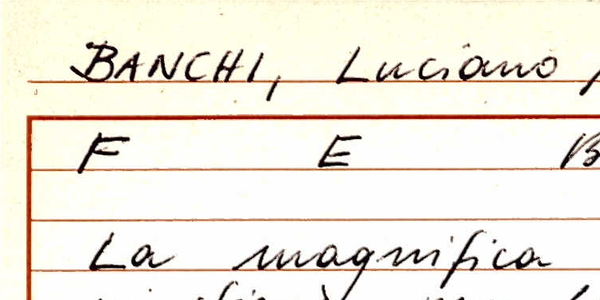 BANCHI, Luciano
F E B
La magnifica